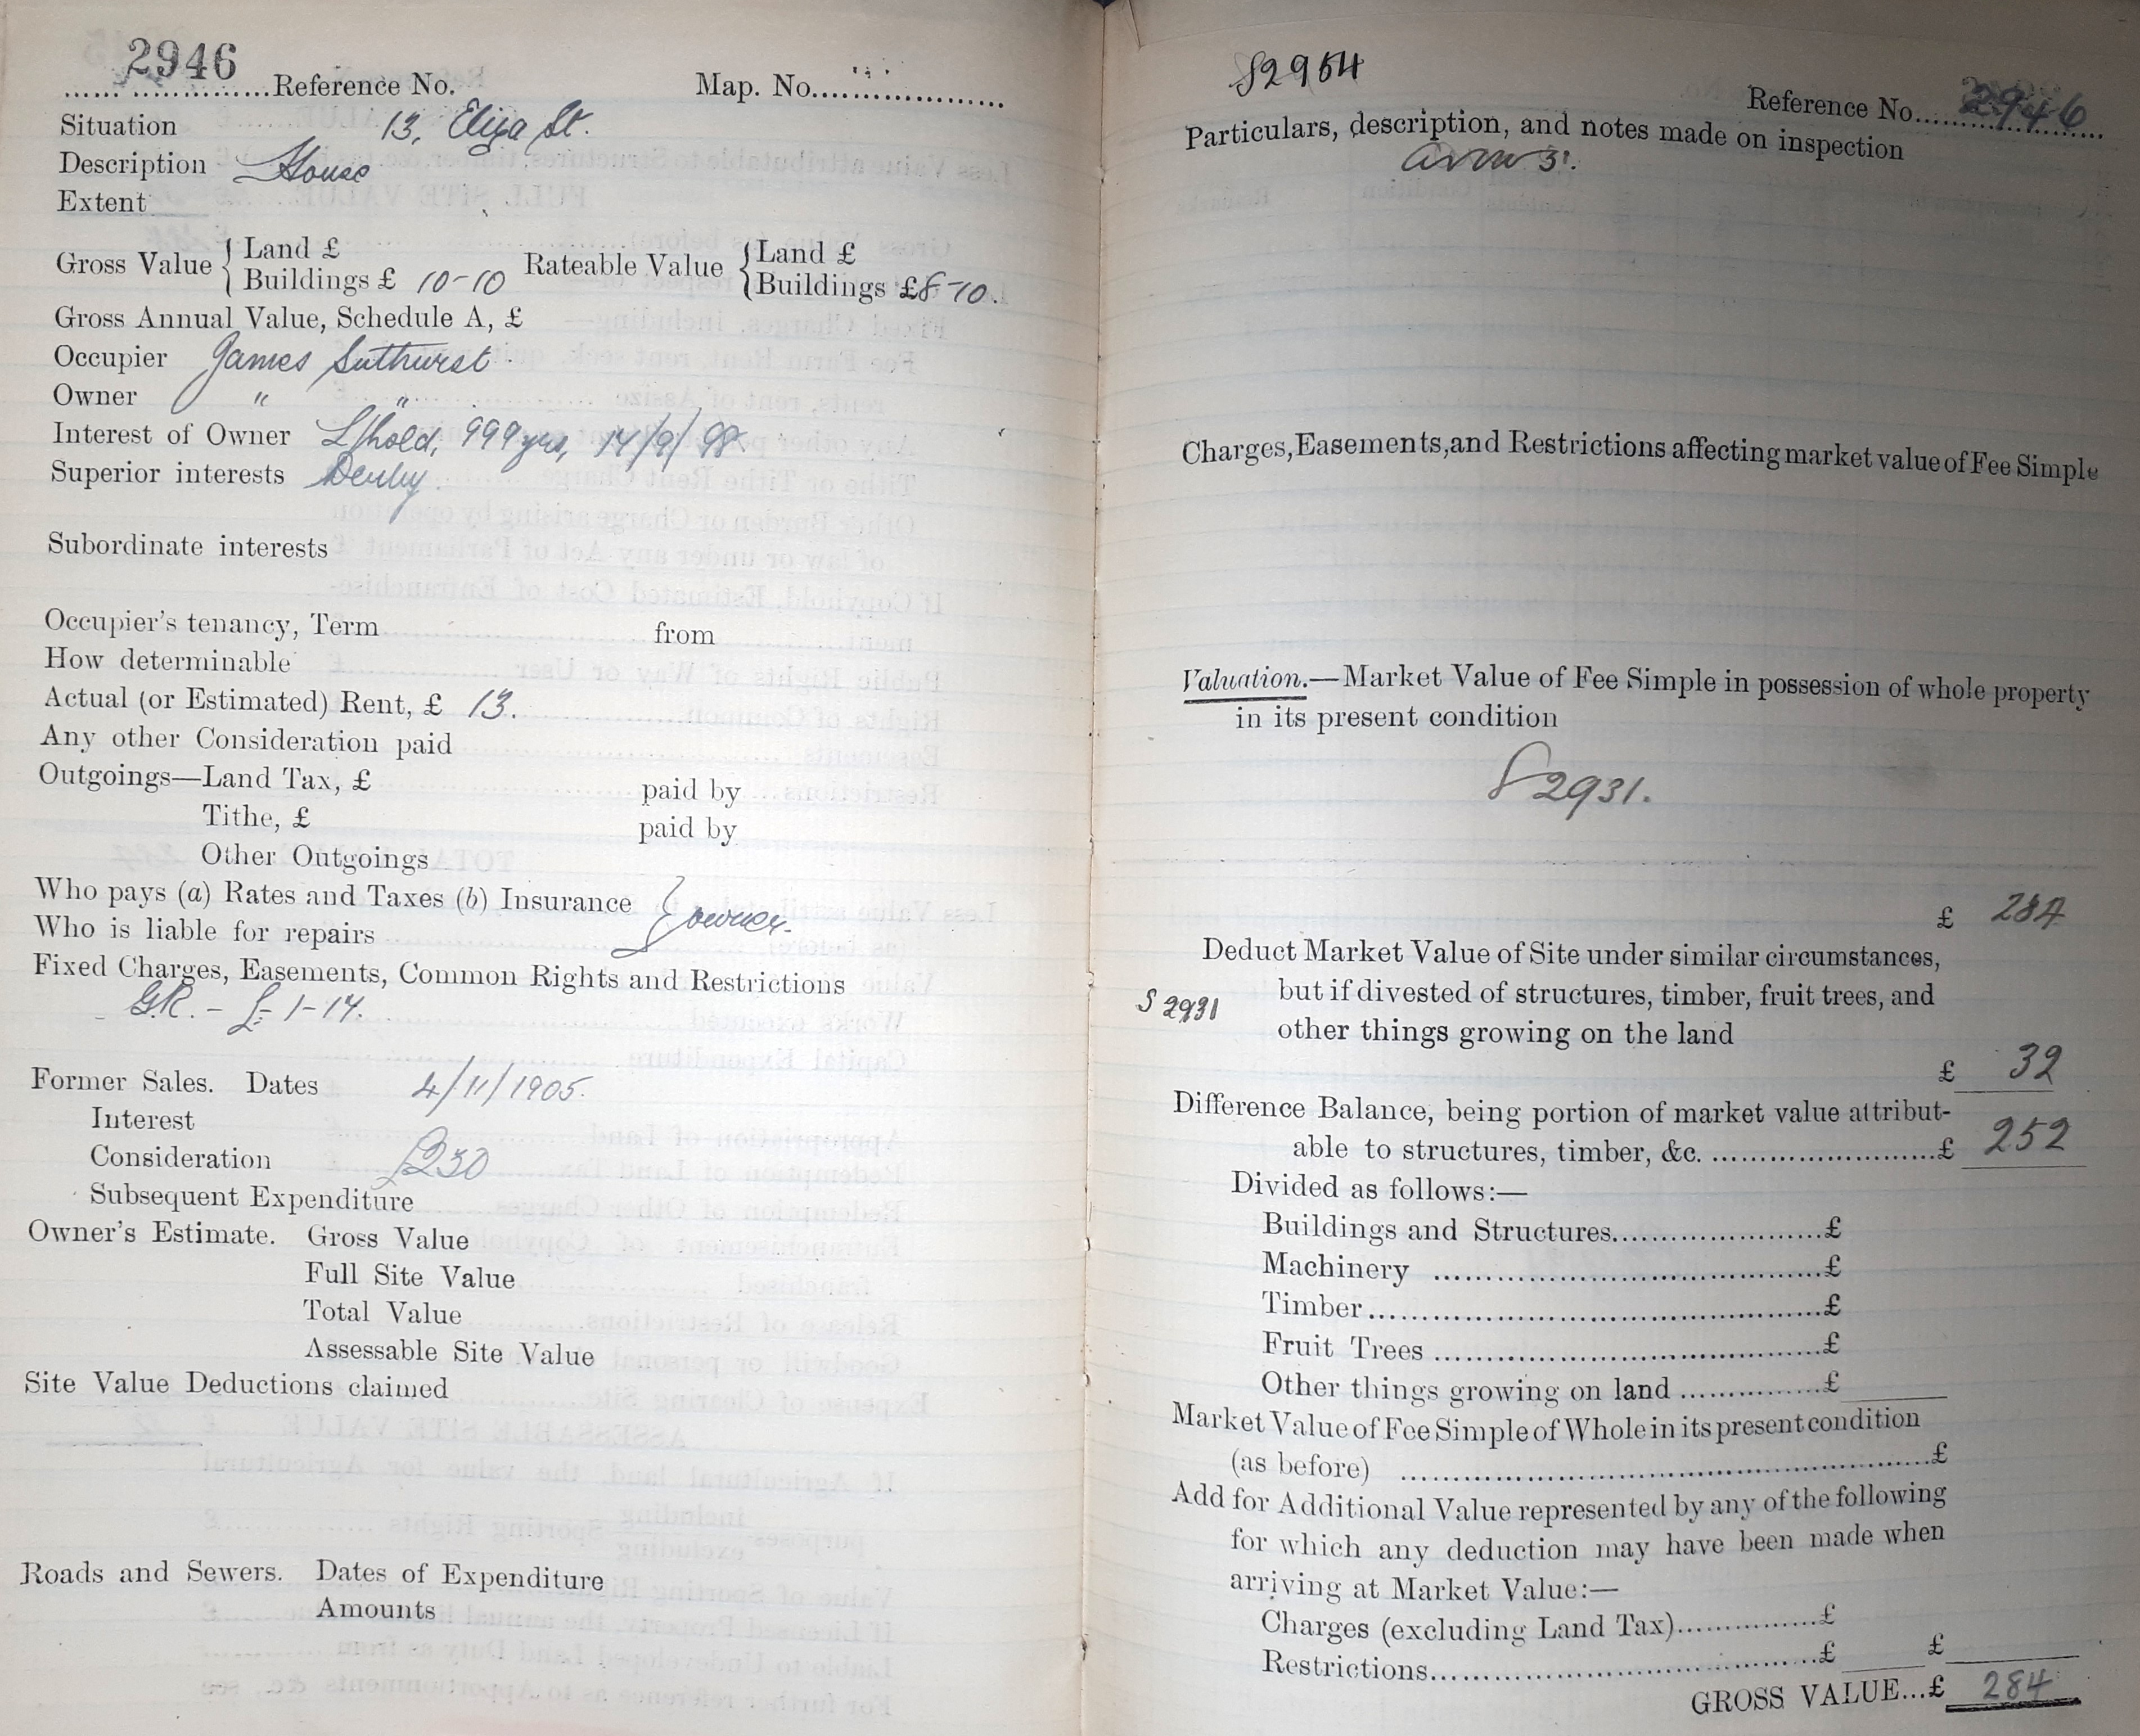 2946
Reference No.
Map. No.
Situation 13, Eliza St.
Description House
Extent
Gross Value { Land £
Buildings £ 10-10
Rateable Value { Land £
Buildings £ 8-10.
Gross Annual Value, Schedule A, £
Occupier James Suthurst
Owner " "
Interest of Owner L/hold, 999 yrs, 14/9/98
Superior interests
Subordinate interests
Occupier's tenancy, Term from
How determinable
Actual (or Estimated) Rent, £ 13.
Any other Consideration paid
Outgoings—Land Tax, £ paid by
Tithe, £ paid by
Other Outgoings
Who pays (a) Rates and Taxes (b) Insurance } owner.
Who is liable for repairs
Fixed Charges, Easements, Common Rights and Restrictions
G.R. - £-1-14.
Former Sales. Dates 4/11/1905.
Interest
Consideration £230
Subsequent Expenditure
Owner's Estimate. Gross Value
Full Site Value
Total Value
Assessable Site Value
Site Value Deductions claimed
Roads and Sewers. Dates of Expenditure
Amounts
S2954
Reference No. 2946
Particulars, description, and notes made on inspection
Charges, Easements, and Restrictions affecting market value of Fee Simple
Valuation.—Market Value of Fee Simple in possession of whole property
in its present condition
S 2931.
£ 284
Deduct Market Value of Site under similar circumstances,
but if divested of structures, timber, fruit trees, and
S 2931
other things growing on the land
£ 32
Difference Balance, being portion of market value attribut-
able to structures, timber, &c. £ 252
Divided as follows:—
Buildings and Structures £
Machinery £
Timber £
Fruit Trees £
Other things growing on land £
Market Value of Fee Simple of Whole in its present condition
(as before) £
Add for Additional Value represented by any of the following
for which any deduction may have been made when
arriving at Market Value:—
Charges (excluding Land Tax) £
Restrictions £ £
GROSS VALUE...£ 284